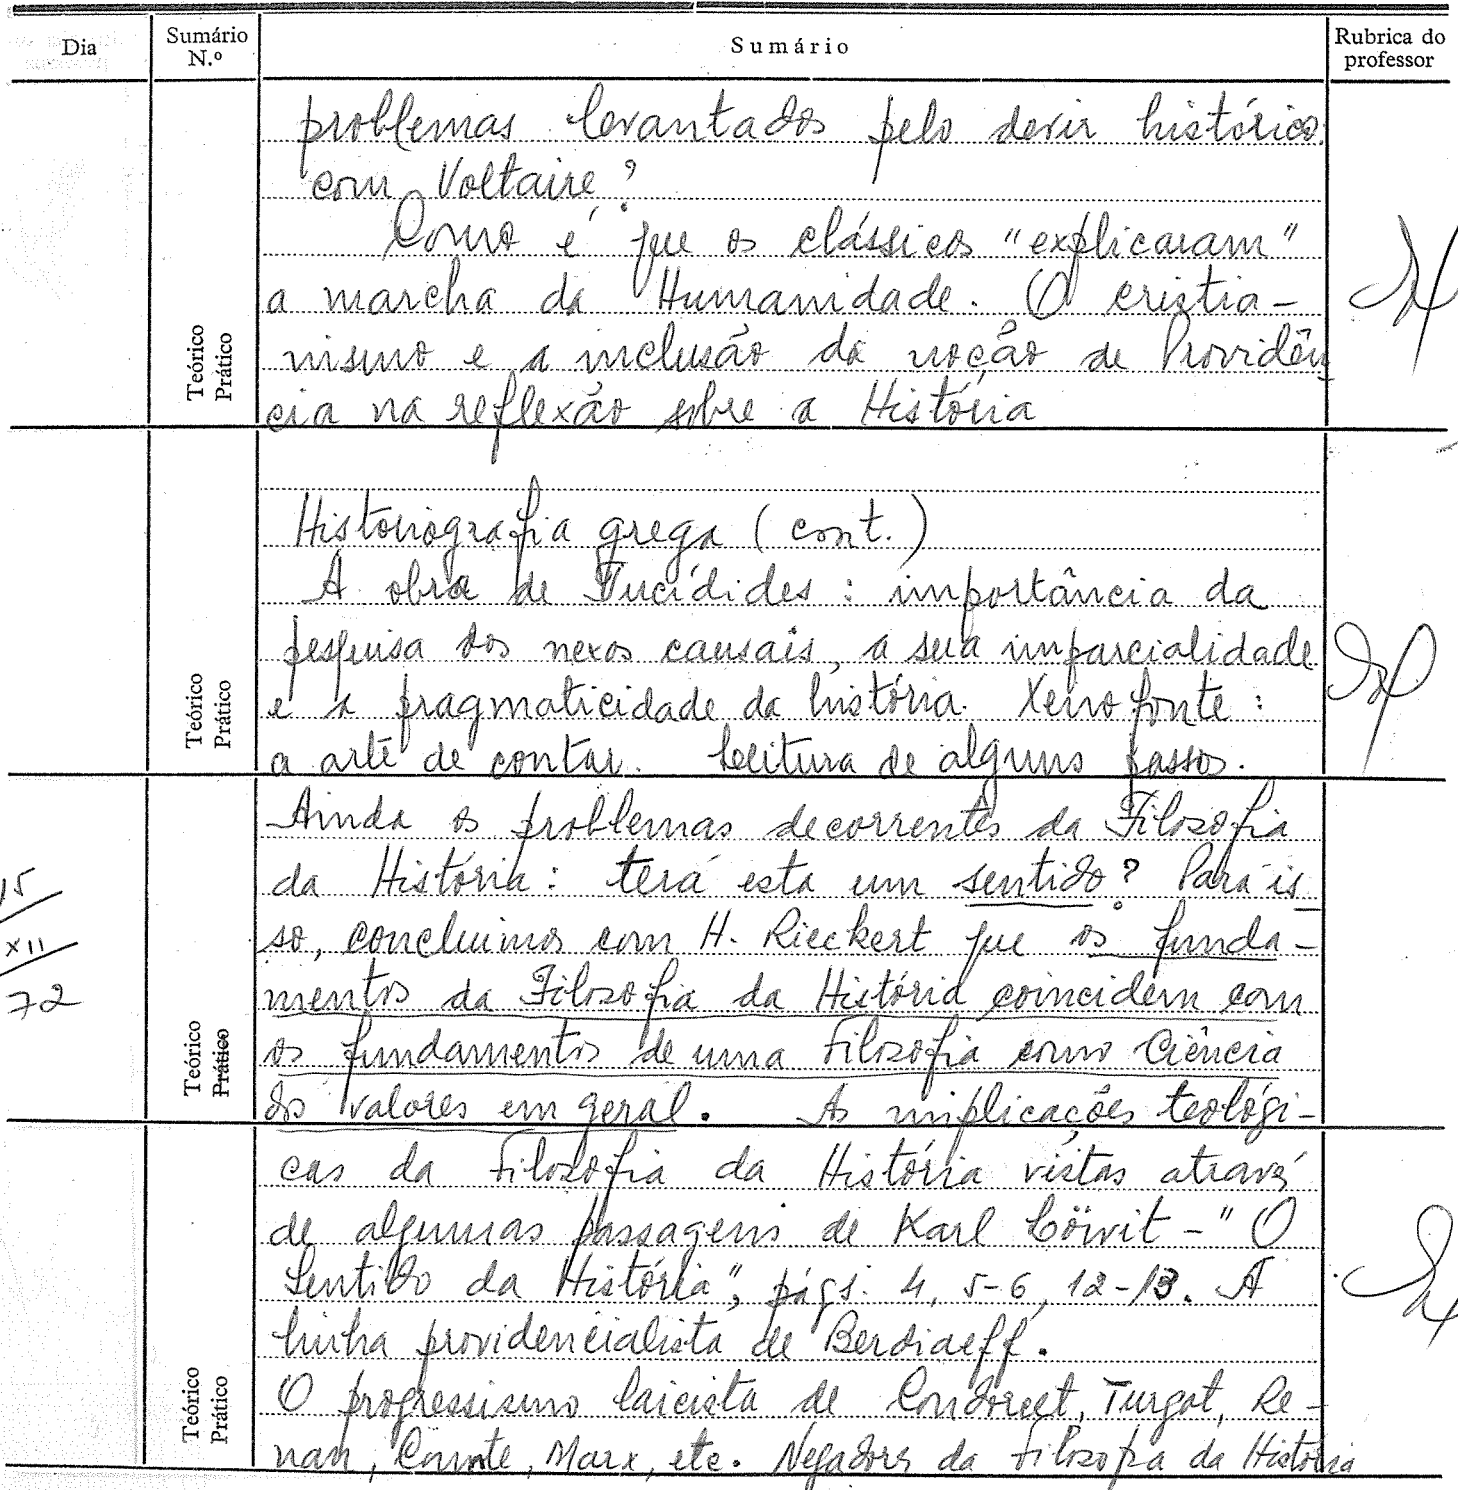 Dia
Sumário N.º
Sumário
Rubrica do professor
problemas levantados pelo devir histórico
com Voltaire?
Como é que os clássicos "explicaram"
a marcha da Humanidade. O cristia-
nismo e a inclusão da noção de Providên-
cia na reflexão sobre a História
Teórico
Prático
Historiografia grega (cont.)
A obra de Tucídides: importância da
pesquisa dos nexos causais, a sua imparcialidade
e a pragmaticidade da história. Xenofonte:
a arte de contar. Leitura de alguns passos.
Teórico
Prático
15
XII
72
Ainda os problemas decorrentes da Filosofia
da História: terá esta um sentido? Para is-
so, concluimos com H. Rieckert que os funda-
mentos da Filosofia da História coincidem com
os fundamentos de uma Filosofia como Ciência
dos valores em geral. As implicações teológi-
Teórico
Prático
cas da Filosofia da História vistas através
de algumas passagens de Karl Löwit - "O
Sentido da História", págs. 4, 5-6, 12-13. A
linha providencialista de Berdiaeff.
O progressismo laicista de Condorcet, Turgot, Re-
nan, Comte, Marx, etc. Negadores da Filosofia da História
Teórico
Prático